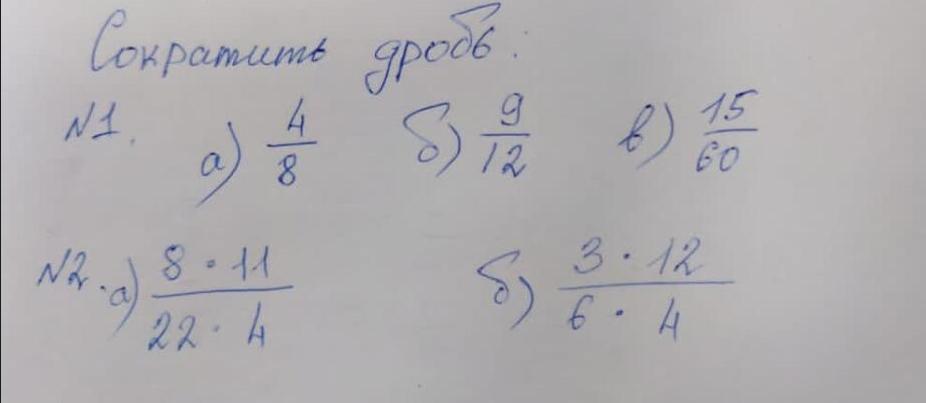 Сократить дробь:
№1. а) 4/8 б) 9/12 в) 15/60
№2. а) 8 · 11 / 22 · 4 б) 3 · 12 / 6 · 4